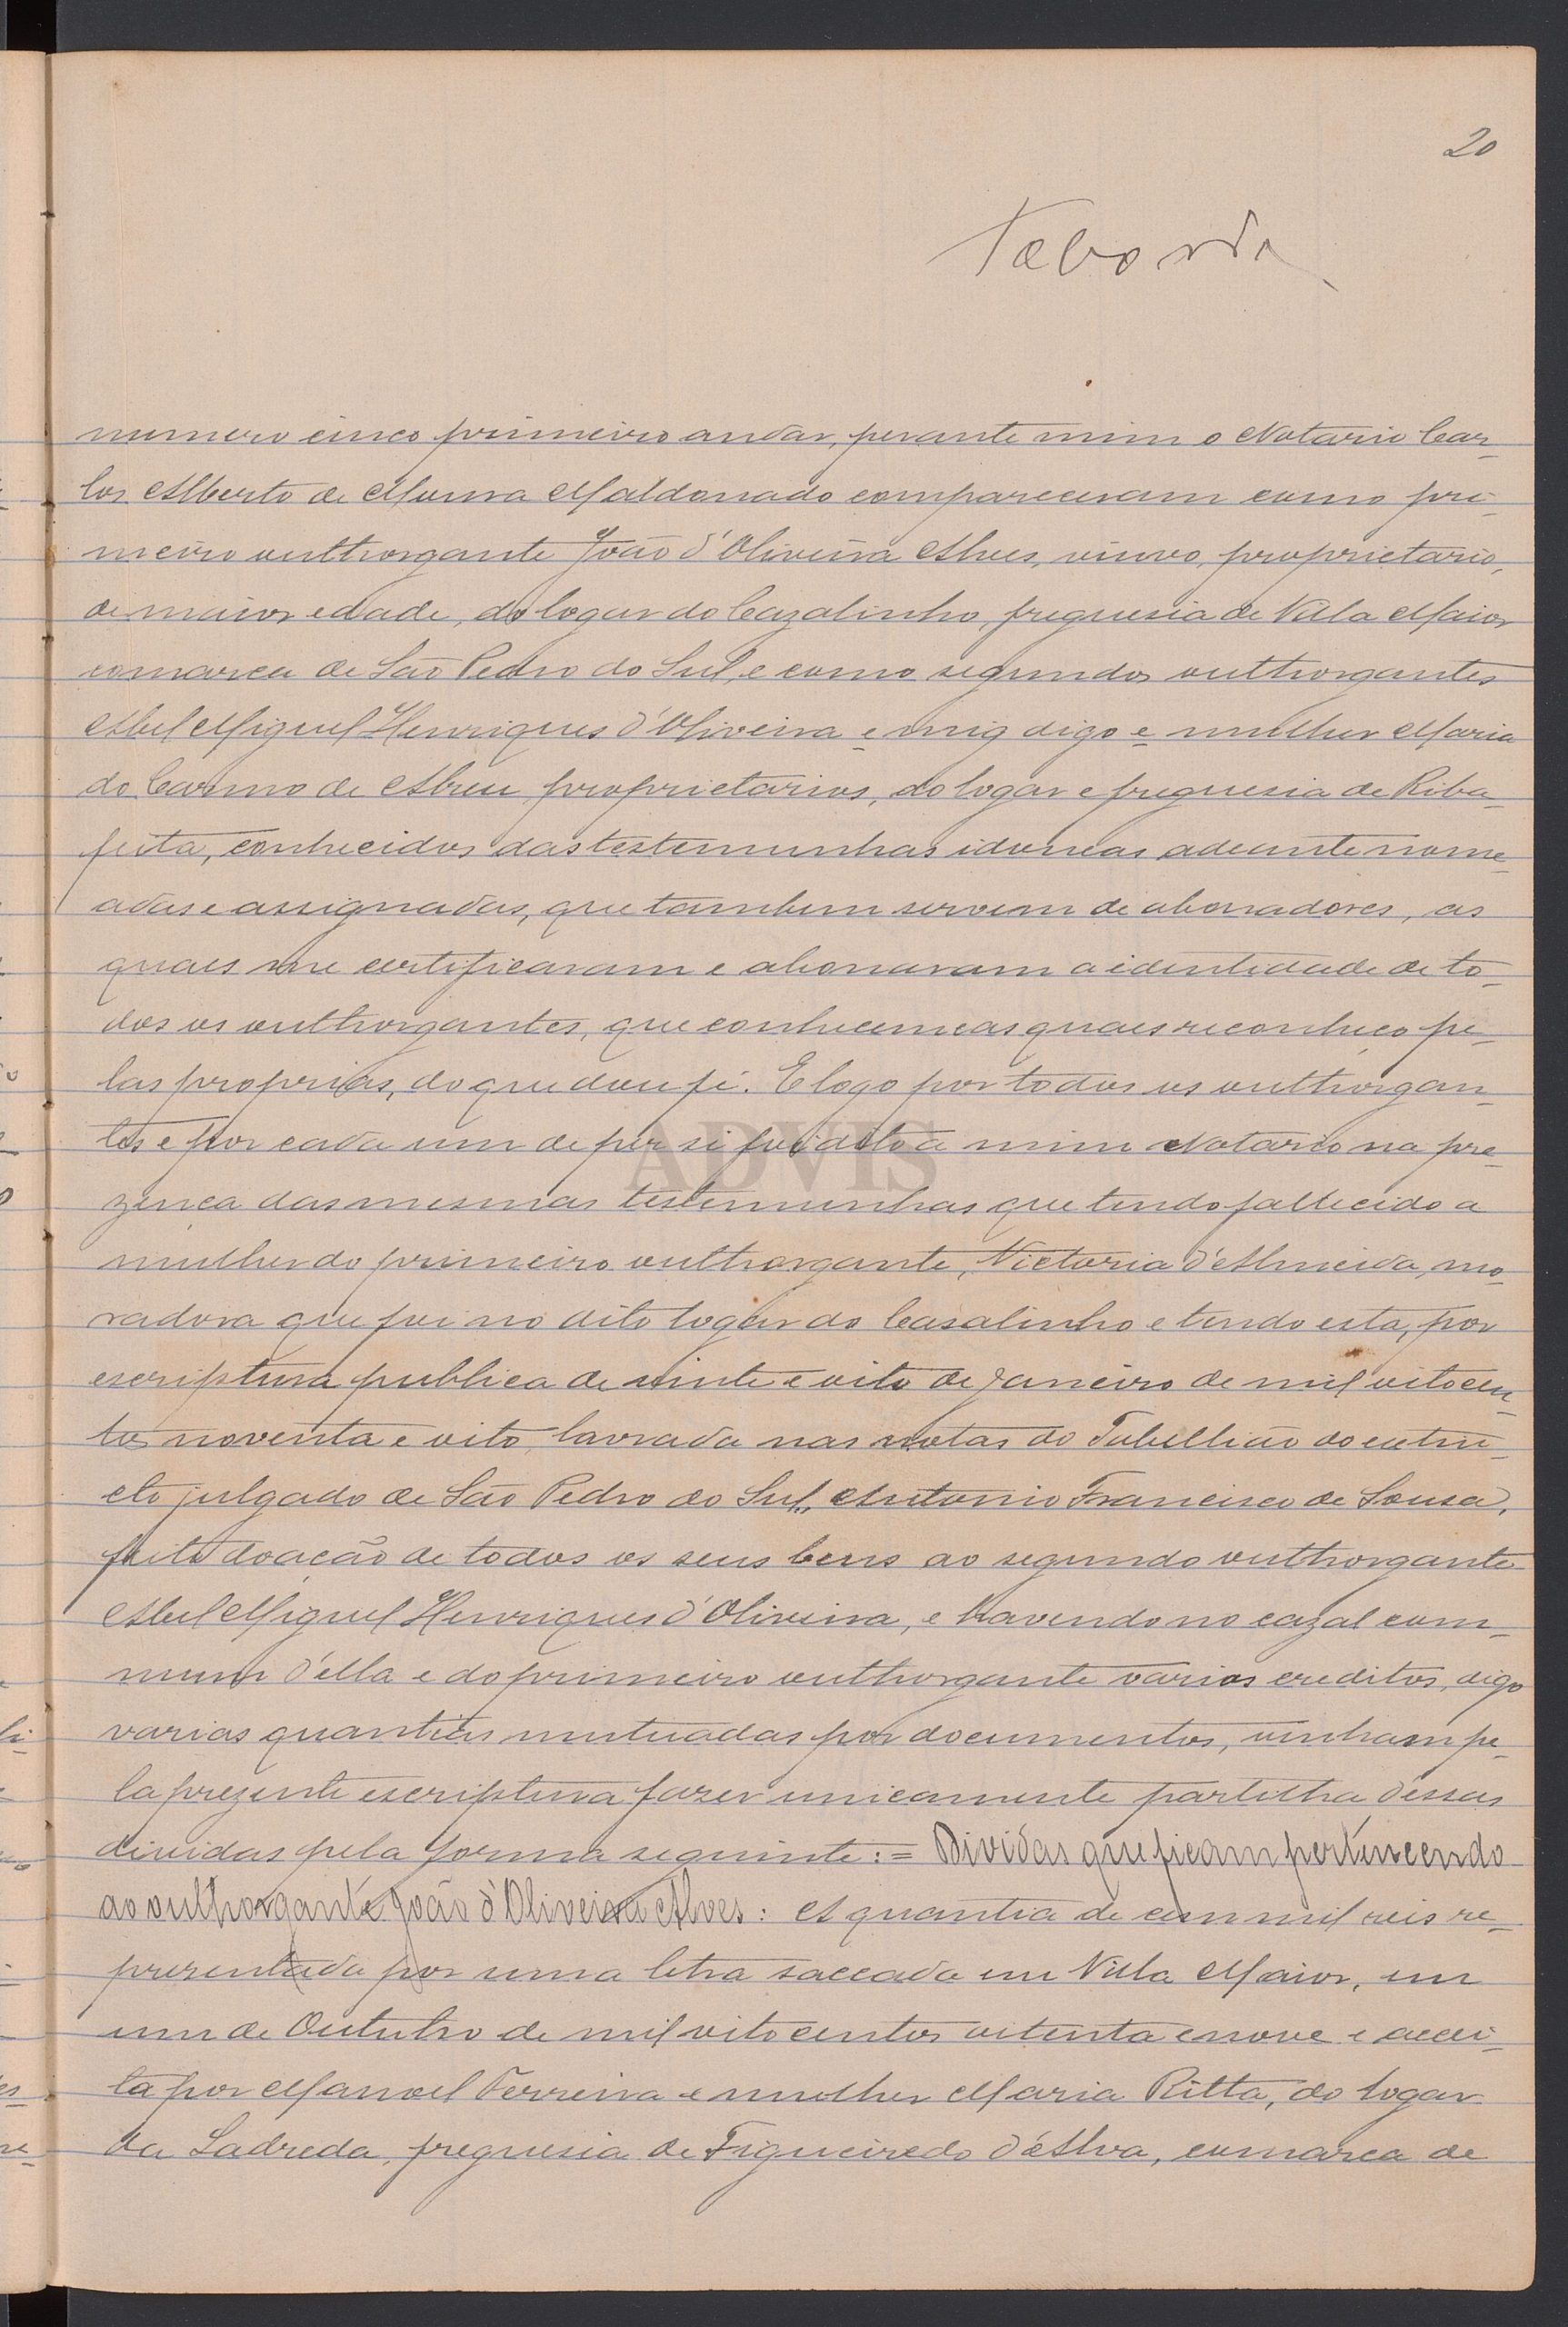 20
Taborda
numero cinco primeiro andar, perante mim o Notario Car-
los Alberto de Moura Maldonado compareceram como pri-
meiro outhorgante João d'Oliveira Alves, viuvo, proprietario,
de maior edade, do logar do Cazalinho, freguesia de Villa Maior
comarca de São Pedro do Sul, e como segundos outhorgantes
Abel Miguel Henriques d'Oliveira e mig digo e mulher Maria
do Carmo de Abreu proprietarios, do logar e freguesia de Riba-
feita, conhecidos das testemunhas idoneas adeante nome-
adas e assignadas, que tambem servem de abonadores, as
quaes me certificaram e abonaram a identidade de to-
dos os outhorgantes, que conhecem e as quaes reconheço pe-
las proprias, do que dou fé. E logo por todos os outhorgan-
tes e por cada um de per si foi dito a mim Notario na pre-
zença das mesmas testemunhas que tendo fallecido a
mulher do primeiro outhorgante, Victoria d'Almeida, mo-
radora que foi no dito logar do Casalinho e tendo esta, por
escriptura publica de vinte e oito de Janeiro de mil oitocen-
tos noventa e oito, lavrada nas notas do Tabellião do extin-
cto julgado de São Pedro do Sul, Antonio Francisco de Sousa,
feito doação de todos os seus bens ao segundo outhorgante
Abel Miguel Henriques d'Oliveira, e havendo no cazal com-
mum d'ella e do primeiro outhorgante varios creditos, digo
varias quantias mutuadas por documentos, vinham pe-
la prezente escriptura fazer unicamente partilha dessas
dividas pela forma seguinte: = Dividas que ficam pertencendo
ao outhorgante João d'Oliveira Alves: A quantia de cem mil reis re-
prezentada por uma letra saccada em Villa Maior, em
um de Outubro de mil oitocentos oitenta e nove e accei-
ta por Manoel Ferreira e mulher Maria Ritta, do logar
da Ladreda, freguesia de Figueiredo d'Alva, comarca de
ADVIS